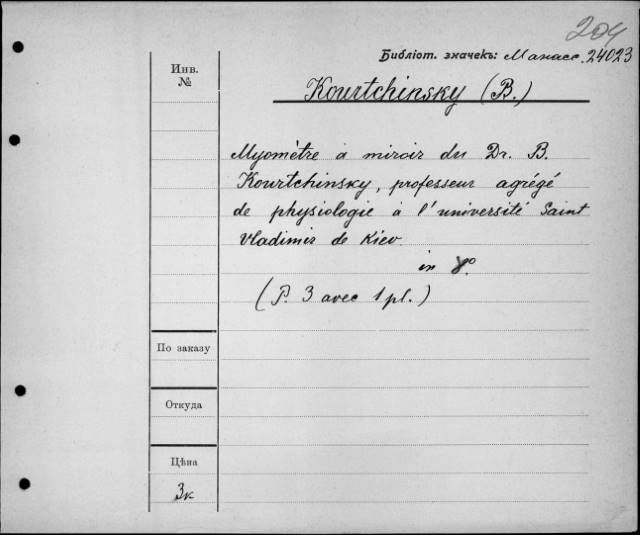 204
Библіот. значекъ: Манасс. 24023
Инв.
№
Kourtchinsky (B.)
Myomètre à miroir du Dr. B.
Kourtchinsky, professeur agrégé
de physiologie à l'université Saint
Vladimir de Kiev.
in 8°.
(P. 3 avec 1 pl.)
По заказу
Откуда
Цѣна
3к